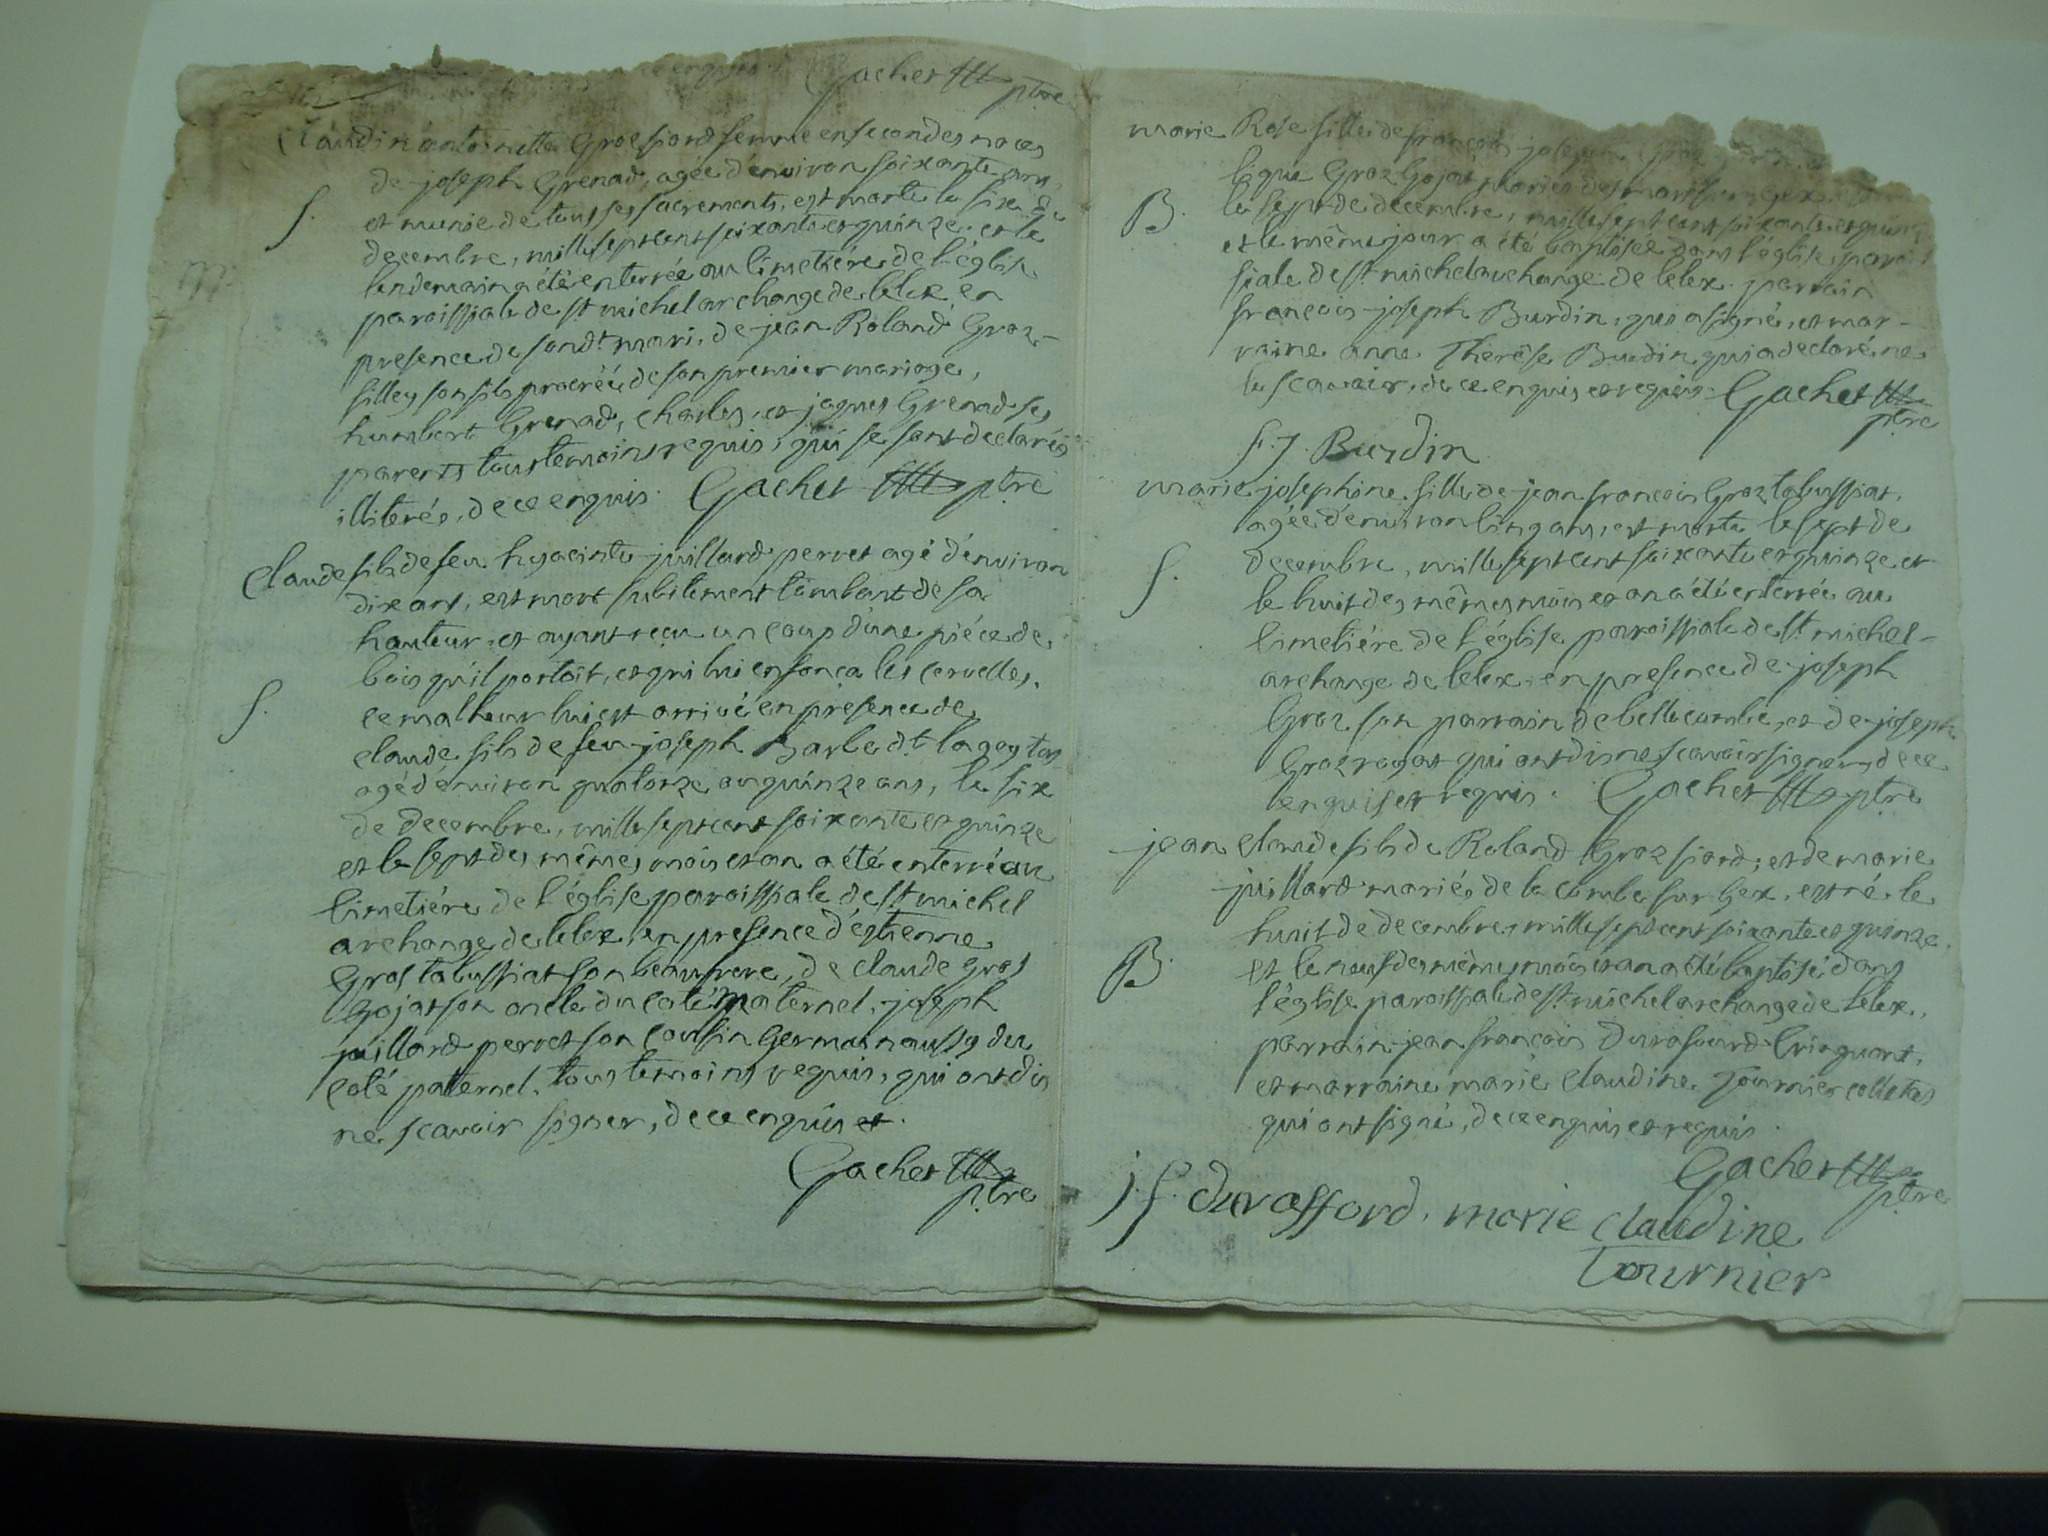 Gachet ptre
Claudin antoinette Gros siord femme en secondes noces
de joseph Grenad, agée d'environ soixante ans,
S.
et munie de tous ses sacrements, est morte le six de
decembre, mille sept cent soixante et quinze. et le
lendemain a été enterrée au cimetiére de l'église
paroissiale de st michel archange de lelex, en
presence de sond.t mari, de jean Roland Groz-
silley son fils procréé de son premier mariage,
humbert Grenad, charles, et jaques Grenad ses
parents tous temoins requis, qui se sont declarés
illiterés, de ce enquis. Gachet ptre
Claude fils de feu hyacinte juillard perret agé d'environ
dix ans, est mort subitement tombant de sa
hauteur, et ayant reçu un coup d'une piéce de
bois qu'il portoit, et qui lui enfonça les cervelles.
S.
ce malheur lui est arrivé en présence de
claude fils de feu joseph Barbe d.t
agé d'environ quatorze ou quinze ans, le six
de decembre, mille sept cent soixante et quinze
et le sept des mêmes mois et an a été enterré au
cimetiére de l'église paroissiale de st michel
archange de lelex, en presence d'étienne
Gros tabussiat son beaufrere, de claude Gros
Gojat son oncle du coté maternel, joseph
juillard perret son cousin Germain aussy du
coté paternel, tous temoins requis, qui ont dis
ne scavoir signer, de ce enquis et.
Gachet ptre
marie Rose fille de françois joseph
Groz Gojat mariés des
B.
le sept de decembre, mille sept cent soixante et quinze
et le même jour a été baptisée dans l'église parois
siale de st michel archange de lelex. parrain
françois joseph Burdin, qui a signé, et mar-
raine anne Therése Burdin qui a declaré ne
le scavoir, de ce enquis et requis. Gachet
ptre
f. j. Burdin
marie josephine fille de jean françois Groz tabussiat,
agée d'environ cinq ans, est morte le sept de
S.
decembre, mille sept cent soixante et quinze et
le huit des mêmes mois et an a été enterrée au
cimetiére de l'église paroissiale de st michel-
archange de lelex, en presence de joseph
Groz son parrain de bellecombe, et de joseph
Groz royat qui ont dis ne scavoir signer, de ce
enquis et requis. Gachet ptre
jean claude fils de Roland Groz siord, et de marie
juillard mariés de la combe sur Gex, est né le
huit de decembre, mille sept cent soixante et quinze,
B.
et le neuf des mêmes mois et an a été baptisé dans
l'église paroissiale de st michel archange de lelex,
parrain jean françois Durafourd
et marraine marie claudine Tournier
qui ont signé, de ce enquis et requis.
Gachet
ptre
j. f. durafford, marie claudine
Tournier